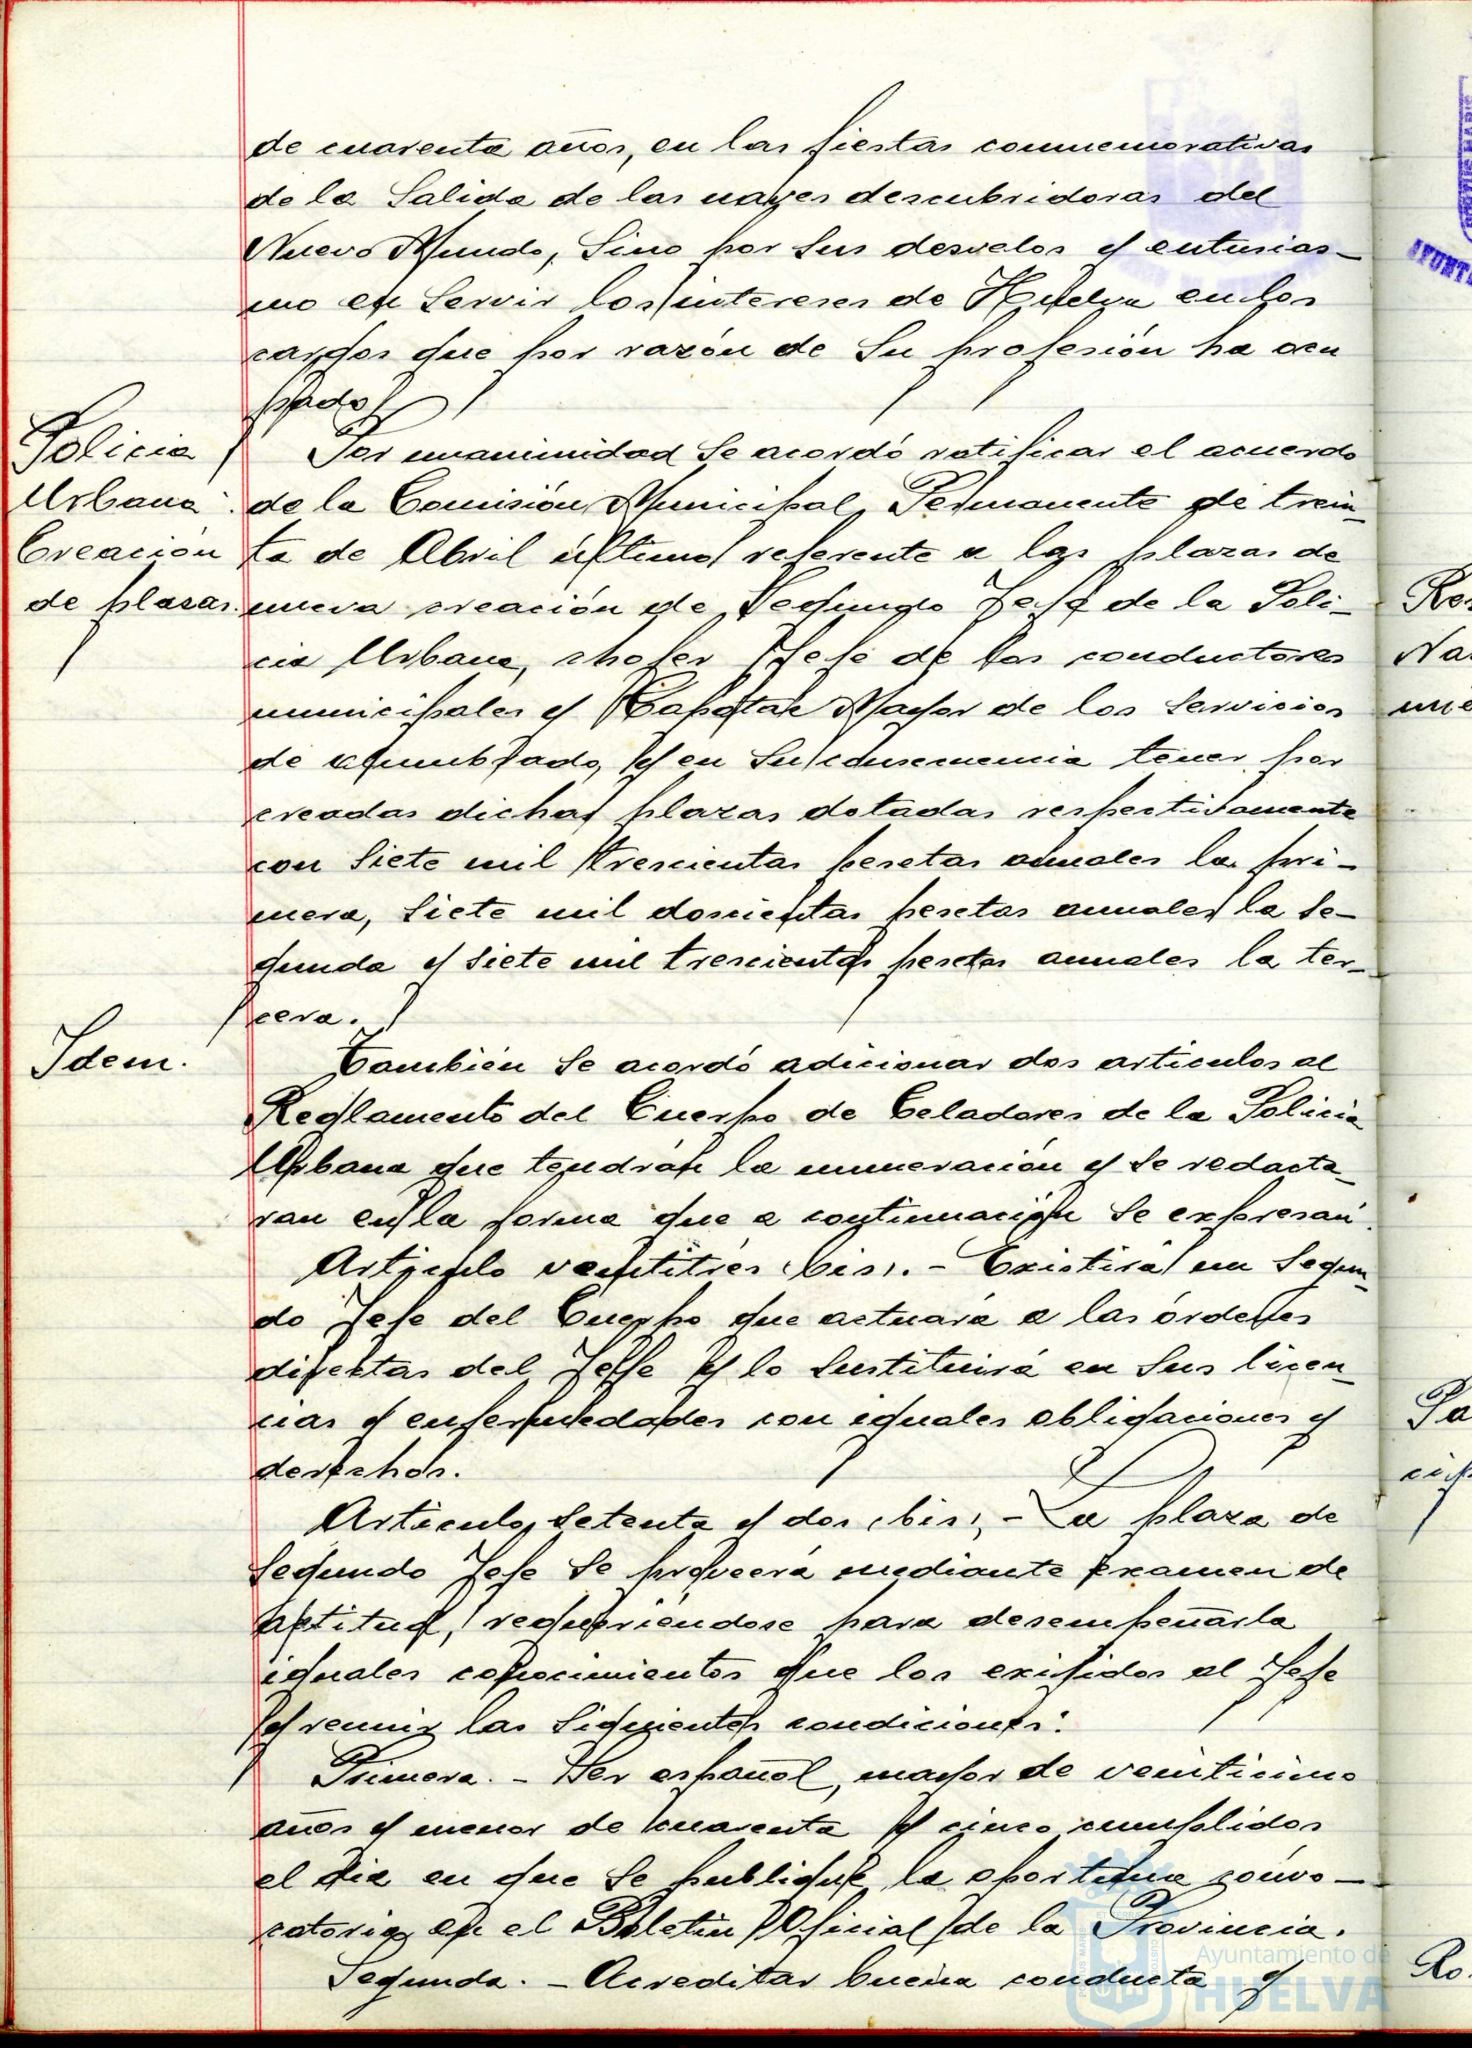 de cuarenta años, en las fiestas conmemorativas
de la Salida de las naves descubridoras del
Nuevo Mundo, Sino por Sus desvelos y entusias-
mo en Servir los intereses de Huelva en los
cargos que por razón de Su profesión ha ocu
pado
Policia
Urbana
Creación
de plazas.
Por unanimidad Se acordó ratificar el acuerdo
de la Comisión Municipal Permanente de trein-
ta de Abril último referente a las plazas de
nueva creación de Segundo Jefe de la Poli-
cia Urbana, chofer Jefe de los conductores
municipales y Capataz Mayor de los Servicios
de alumbrado, y en Su consecuencia tener por
creadas dichas plazas dotadas respectivamente
con Siete mil trescientas pesetas anuales la pri-
mera, Siete mil doscientas pesetas anuales la Se-
gunda y siete mil trescientas pesetas anuales la ter-
cera.
Idem.
También Se acordó adicionar dos articulos al
Reglamento del Cuerpo de Celadores de la Policia
Urbana que tendrán la numeración y Se redacta-
ran en la forma que a continuación Se expresan.
Articulo veintitrés (bis).- Existirá un Segun-
do Jefe del Cuerpo que actuará a las órdenes
directas del Jefe y lo Sustituirá en Sus licen-
cias y enfermedades con iguales obligaciones y
derechos.
Articulo Setenta y dos (bis).- La plaza de
Segundo Jefe Se proveerá mediante examen de
aptitud, requiriéndose para desempeñarla
iguales conocimientos que los exigidos al Jefe
y reunir las Siguientes condiciones:
Primera.- Ser español, mayor de veinticinco
años y menor de cuarenta y cinco cumplidos
el dia en que Se publique la oportuna convo-
catoria en el Boletin Oficial de la Provincia.
Segunda.- Acreditar buena conducta y
Ayuntamiento de
HUELVA